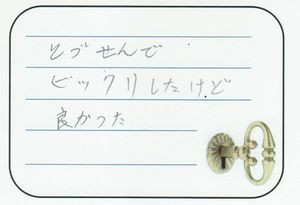 とづせんで
ビックリしたけど
良かった